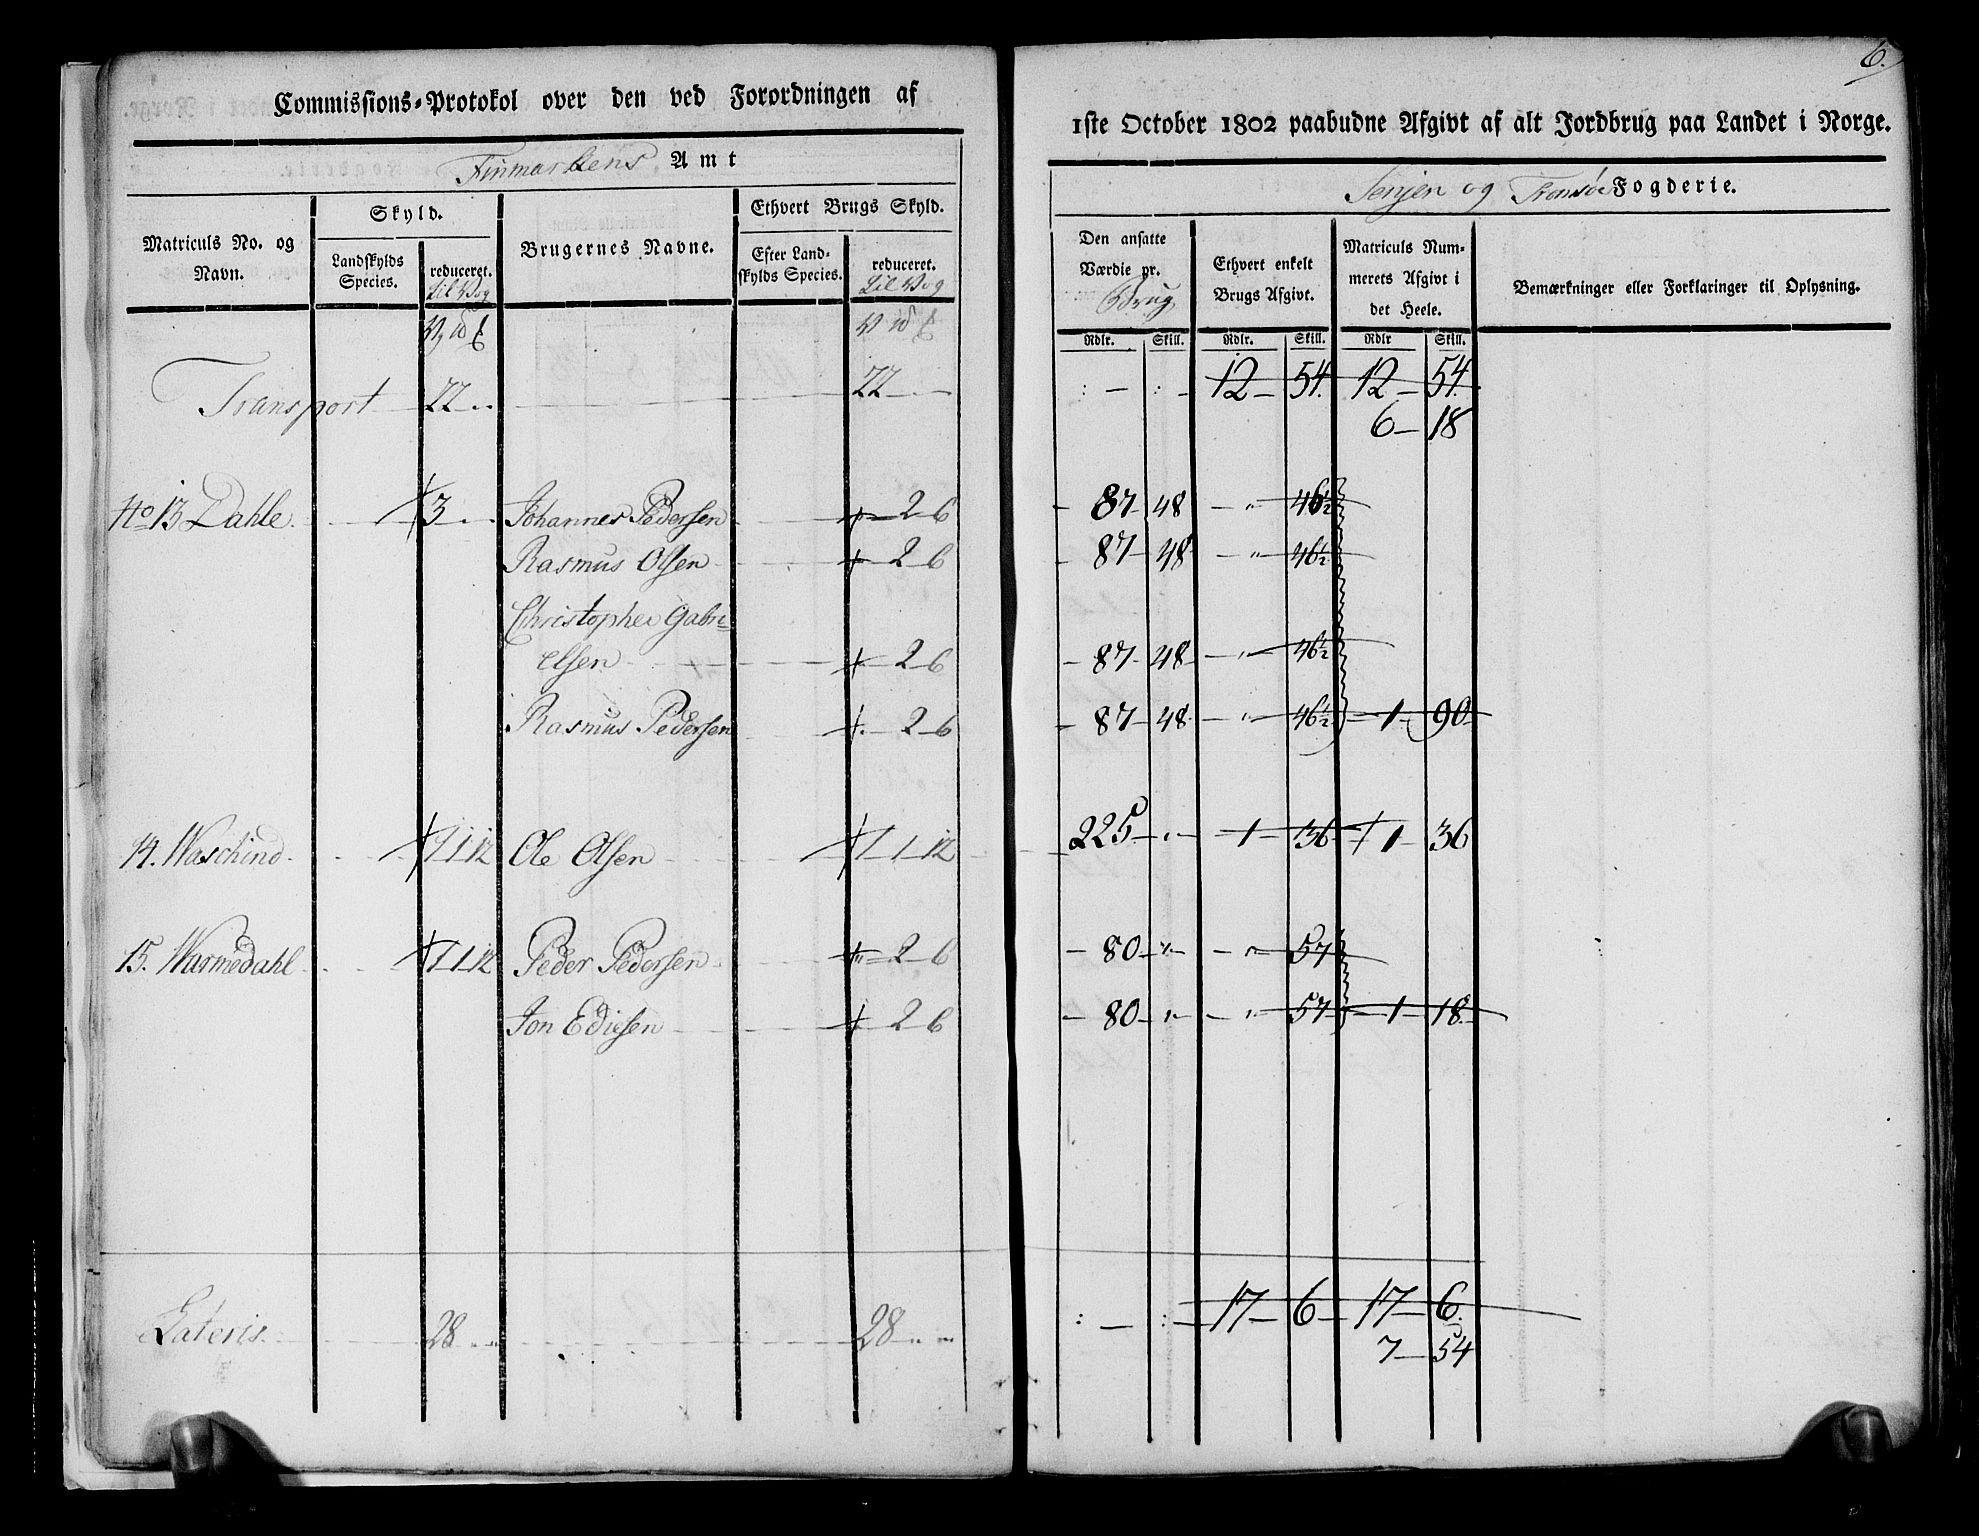 Commissions-Protokol over den ved Forordningen af
Finmarkens Amt
Matriculs No. og Navn.
Skyld.
Landskylds Species.
reduceret. til Vog
Brugernes Navne.
Ethvert Brugs Skyld.
Efter Landskylds Species.
reduceret. til Vog
Transport 22 22
No 13 Dahle 3 Johannes Pedersen 2 6
Rasmus Olsen 2 6
Christopher Gabri=
elsen 2 6
Rasmus Pedersen 2 6
14. Waschind 1 1 12 Ole Olsen 1 1 12
15. Warmedahl 1 1 12 Peder Pedersen 2 6
Jon Ediesen 2 6
Lateris 28 28
6.
1ste October 1802 paabudne Afgivt af alt Jordbrug paa Landet i Norge.
Senjen og Tromsöe Fogderie.
Den ansatte Værdie pr. Brug
Ethvert enkelt Brugs Afgivt.
Matriculs Nummerets Afgivt i det Heele.
Bemærkninger eller Forklaringer til Oplysning.
Rdlr. Skill. Rdlr. Skill. Rdlr Skill.
12 54. 12 54.
6 18
87 48 " 46½
87 48 " 46½
87 48 " 46½
87 48 " 46½ 1 90
225 " 1 36 1 36
80 " " 57
80 " " 57 1 18
17 6 17 6.
7 54